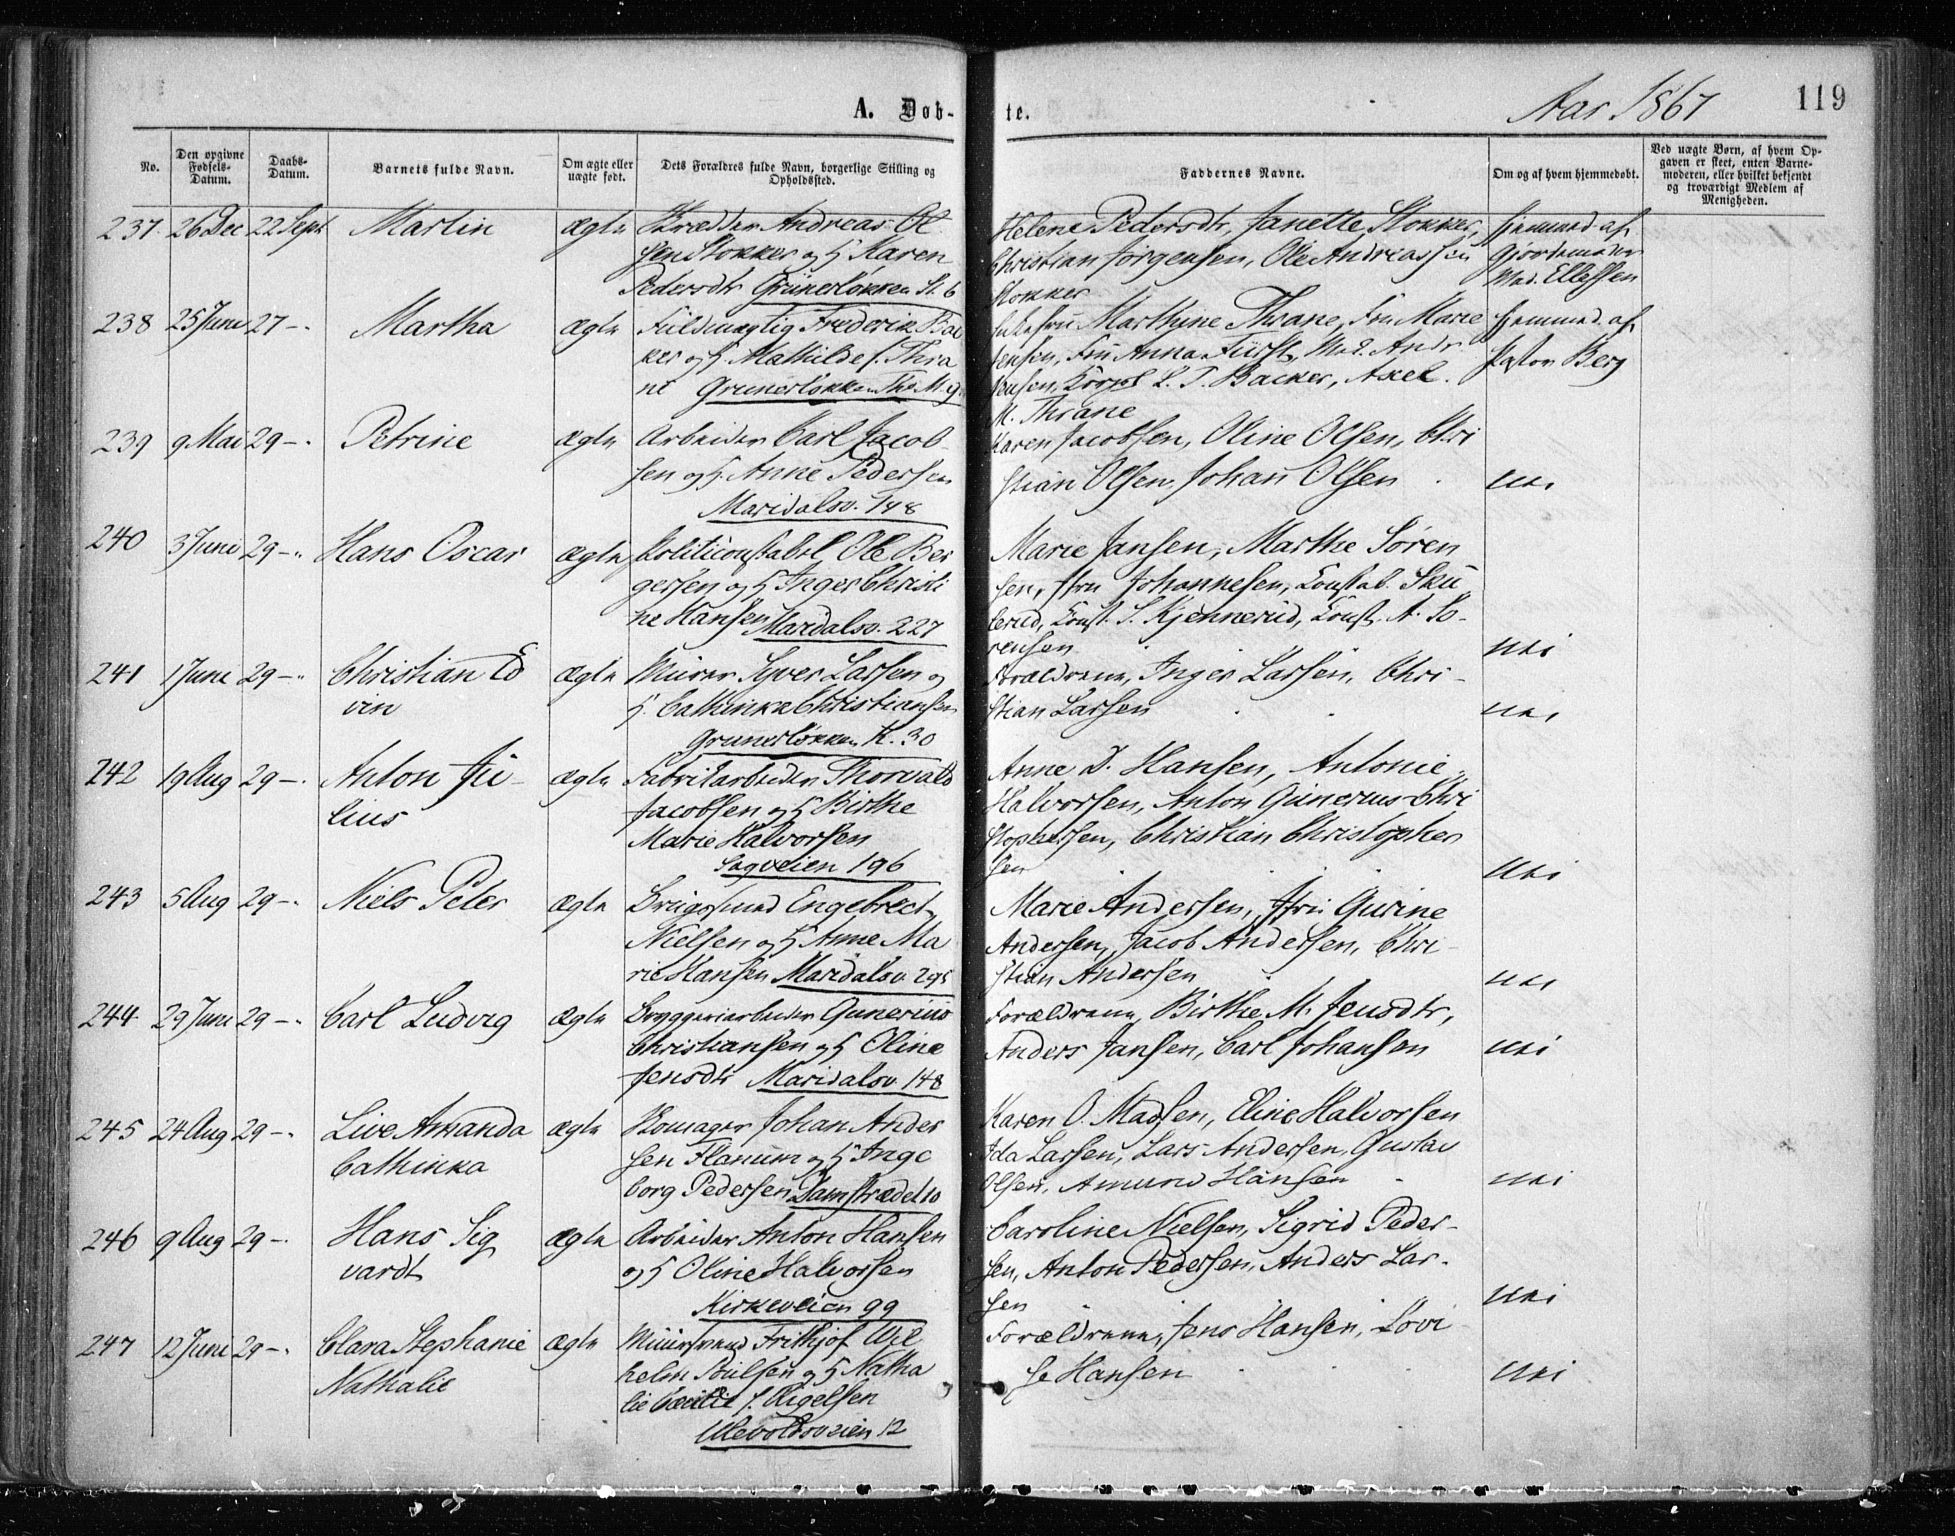 A. Døb-
te.
Aar 1867
119
No.
Den opgivne Fødsels-Datum.
Daabs-Datum.
Barnets fulde Navn.
Om ægte eller uægte født.
Dets Forældres fulde Navn, borgerlige Stilling og Opholdssted.
Faddernes Navne.
Om og af hvem hjemmedøbt.
Ved uægte Børn, af hvem Opgaven er skeet, enten Barnemoderen, eller hvilket bekjendt og troværdigt Medlem af Menigheden.
237. 26 Dec 22 Sept Martin ægte Skrædder Andreas Ol
sen Stokker og H Karen
Pedersdtr Grünerløkken St. 6
Helene Pedersdtr, Janette Stokker,
Christian Jørgensen, Ole Andreassen
Stokker
hjemmed. af
Gjordemoder
Mad. Ellefsen
238 25 Juni 27 -. Martha ægte Fuldmægtig Frederik Bac
ker og H. Mathilde f. Thra
ne Grunerløkken Th. M. 9
Marthine Thrane, Fru Marie
Jensen, Fru Anna Fürst, Mad. Andr
Jensen, L. T. Backer, Axel.
M. Thrane
hjemmed. af
Pastor Berg
239 9 Mai 29 -. Petrine ægte Arbeider Carl Jacob-
sen og H. Anne Pedersen
Maridalsv. 148
Karen Jacobsen, Oline Olsen, Chri
stian Olsen, Johan Olsen
Nei
240 3 Juni 29 -. Hans Oscar ægte Politiconstabel Ole Ber
gersen og H Inger Christi
ne Hansen Maridalsv. 227
Marie Jansen, Marthe Søren
sen, Jfru Johannesen, Constab. Sku
lerud, Const. S. Kjennerud, Const. A. Sø-
rensen
Nei
241 1 Juni 29 -. Christian Ed
vin ægte Murer Syver Larsen og
H. Cathinka Christiansen
Grunerløkken K. 30
Forældrene, Inger Larsen, Chri-
stian Larsen
Nei
242 19 Aug 29 -. Anton Ju-
lius ægte Fabrikarbeider Thorvald
Jacobsen og H Birthe
Marie Halvorsen
Sagveien 196
Anne D. Hansen, Antonie
Halvorsen, Anton Gunerius Chri
stophersen, Christian Christopher
sen
Nei
243 5 Aug 29 -. Niels Peter ægte Brugssmed Engebrect
Nielsen og H Anne Ma
rie Hansen Maridalsv. 295
Marie Andersen, Jfru Gurine
Andersen, Jacob Andersen, Chri-
stian Andersen
Nei
244. 29 Juni 29 -. Carl Ludvig ægte Bryggeriarbeider Gunerius
Christiansen og H Oline
Jensdtr Maridalsv. 148
Forældrene, Birthe M. Jensdtr,
Anders Jansen, Carl Johansen
Nei
245 24 Aug 29 -. Live Amanda
Cathinka ægte Skomager Johan Ander
sen Flanum og H Inge
borg Pedersen Damstrædet 10
Karen O. Madsen, Eline Halvorsen
Ida Larsen, Lars Andersen, Gustav
Olsen, Amund Hansen
Nei
246 9 Aug 29 -. Hans Sig
vardt ægte Arbeider Anton Hansen
og H Oline Halvorsen
Kirkeveien 99
Caroline Nielsen, Sigrid Peder-
sen, Anton Pedersen, Anders Lar-
sen
Nei
247 12 Juni 29 -. Clara Stephanie
Nathalie ægte Muursvend Frithjof Wil
helm Poulsen og H Natha
lie Cecilie f. Rigelsen
Ulevoldsveien 12
Forældrene, Jens Hansen, Lovi
se Hansen
Nei